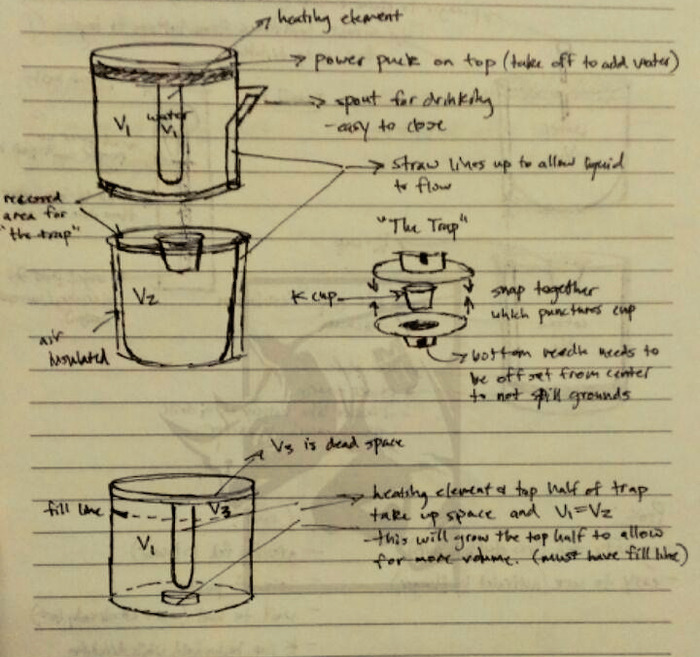 heating element
power puck on top (take off to add water)
V1
water
V1
spout for drinking
-easy to close
straw lines up to allow liquid
to flow
recessed
area for
"the trap"
"The Trap"
V2
K cup
snap together
which punctures cup
air
insulated
bottom needle needs to
be offset from center
to not spill grounds
V3 is dead space
fill line
V3
V1
heating element & top half of trap
take up space and V1=V2
-this will grow the top half to allow
for more volume. (must have fill line)